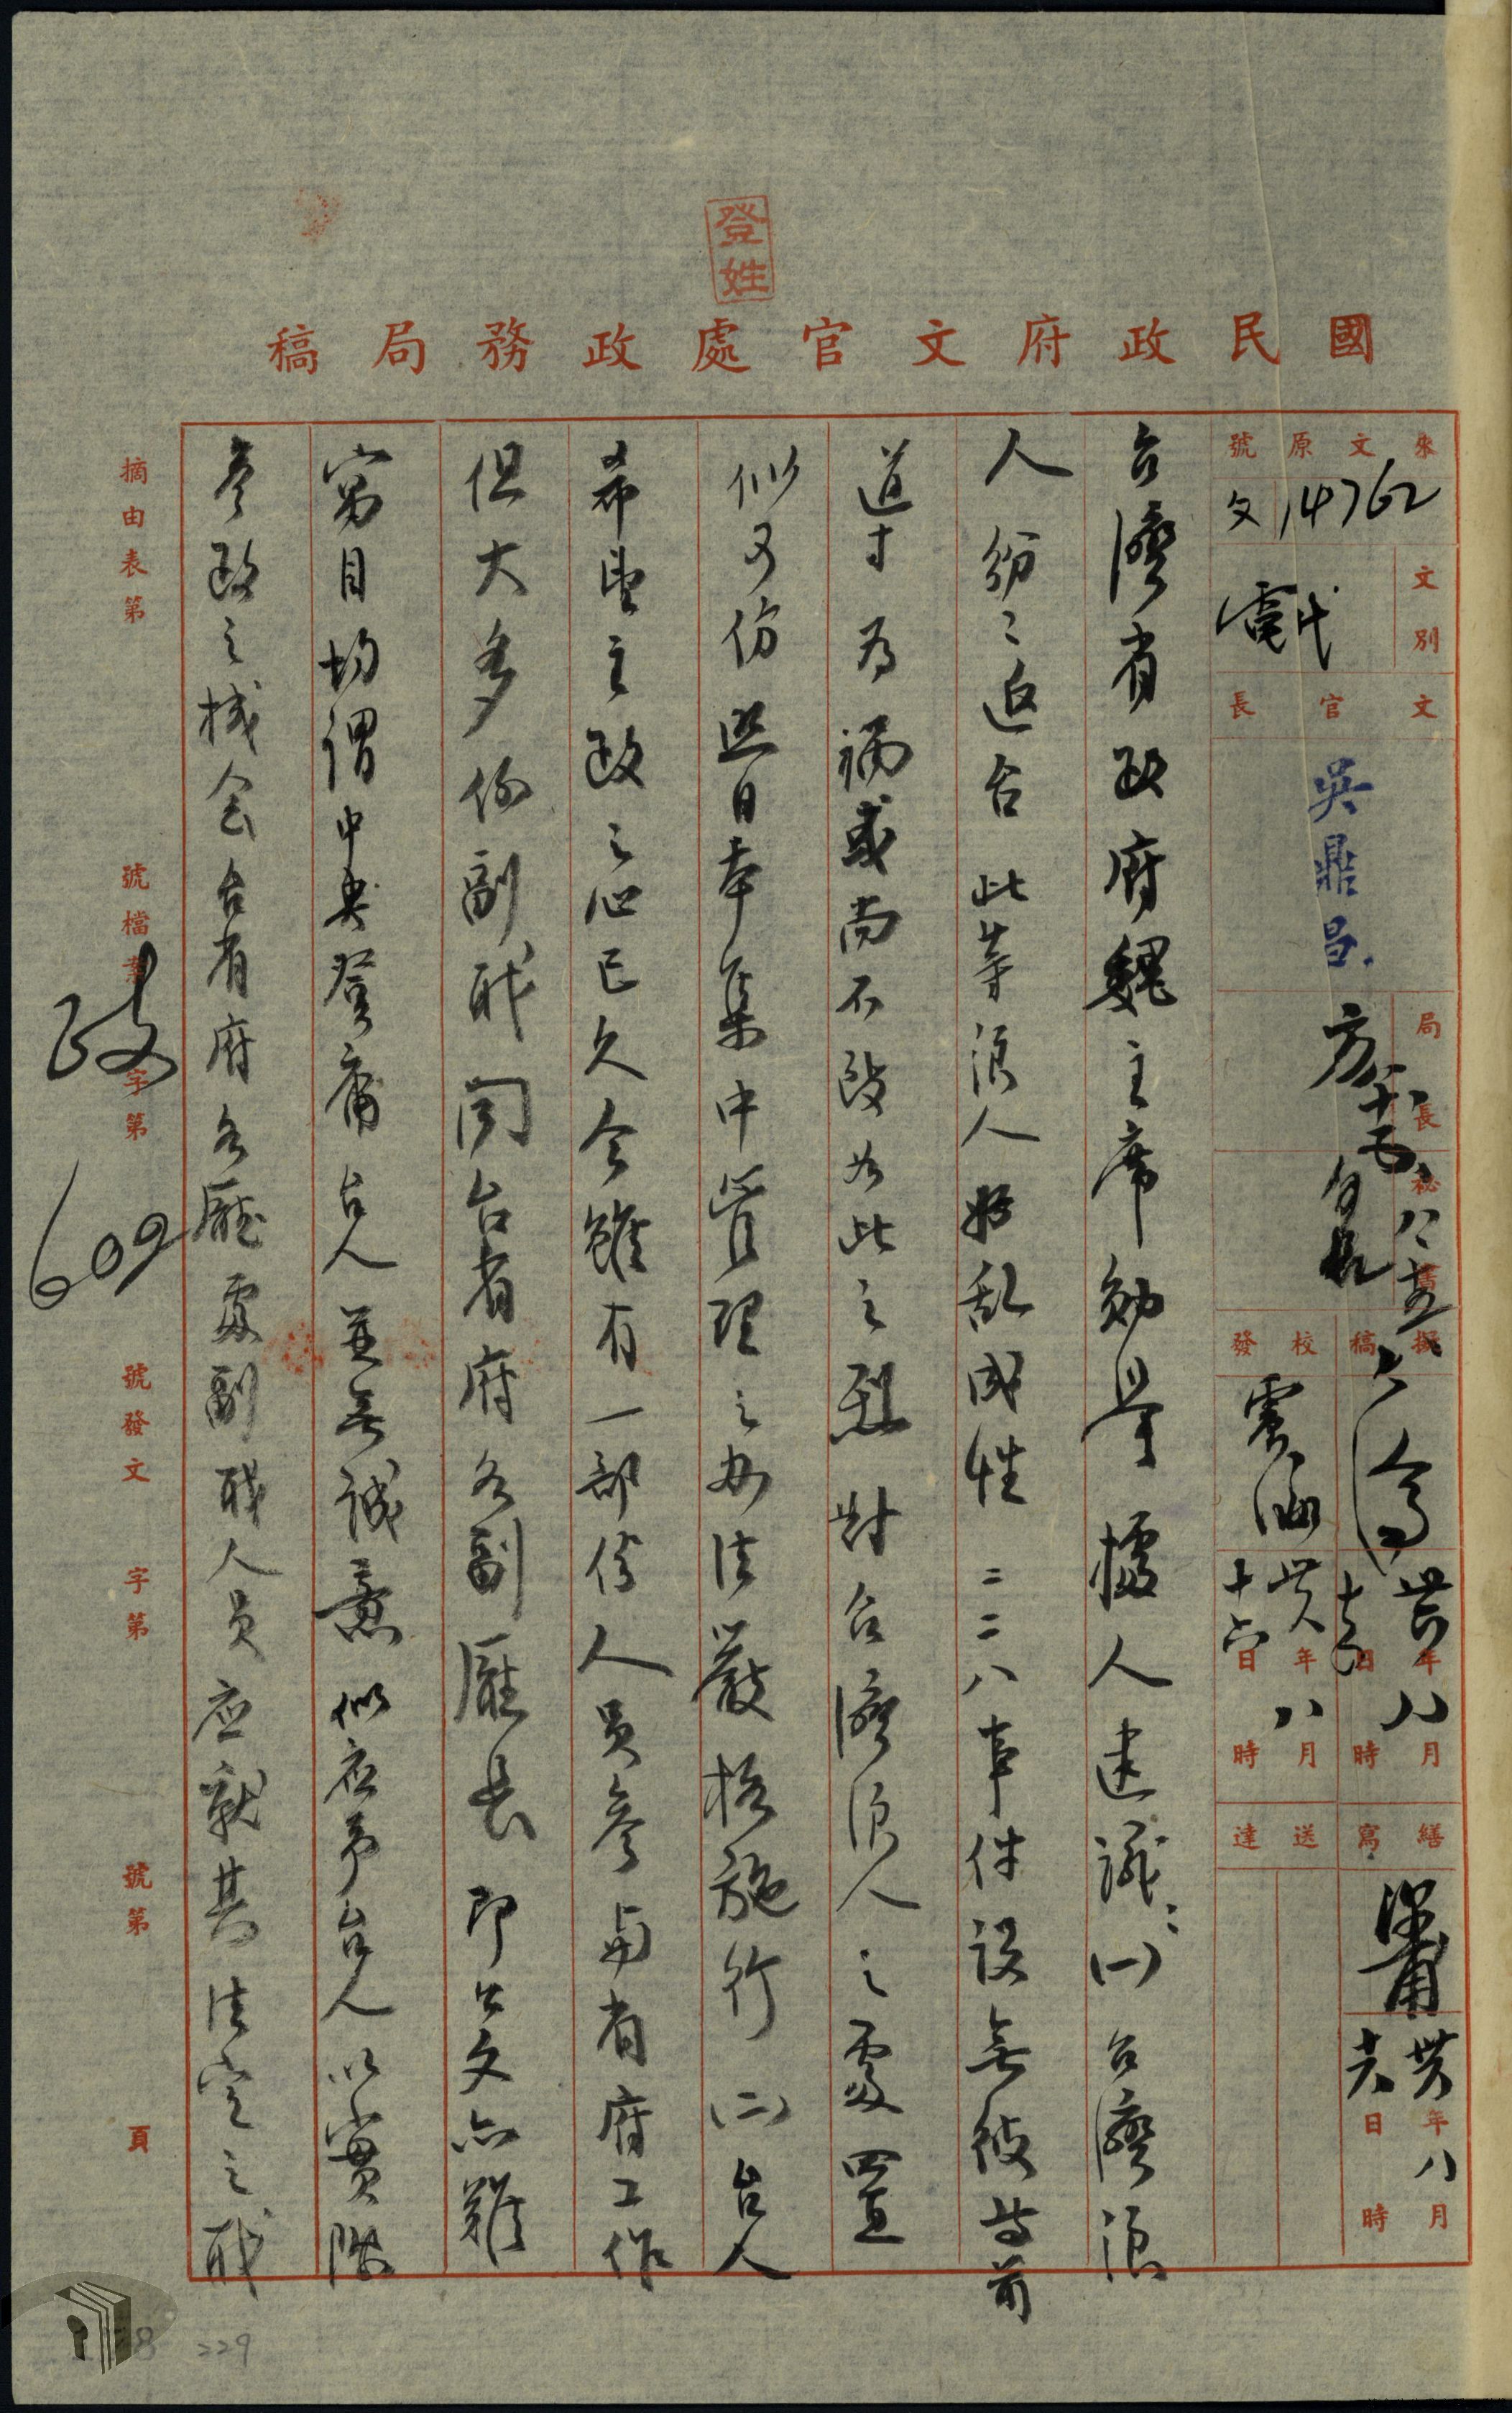 登姓
國民政府文官處政務局稿
來文原號
文 14762
文別
代電
文官長
吳鼎昌
局長
秘書
擬稿
卅六年八月
日 時
校發
卅六年八月
十六日 時
繕寫
卅六年八月
日 時
送達
台灣省政府魏主席勛鑒據人建議:(一)台灣浪
人紛紛返台此等浪人好亂成性二二八事件設無彼等前
導為禍或尚不致如此之烈對台灣浪人之處置
似可仿照日本集中管理之辦法嚴格施行(二)台人
希望主政之心已久今雖有一部份人員參與省府工作
但大多份副職聞台省府各副廳長即公文亦難
寓目均謂中央登庸台人並無誠意似應予台人以實際
參政之機会台省府各廳處副職人員应就其法定之職
摘由表第 號
檔案 政 字第 609 號
發文 字第 號
第 頁
229